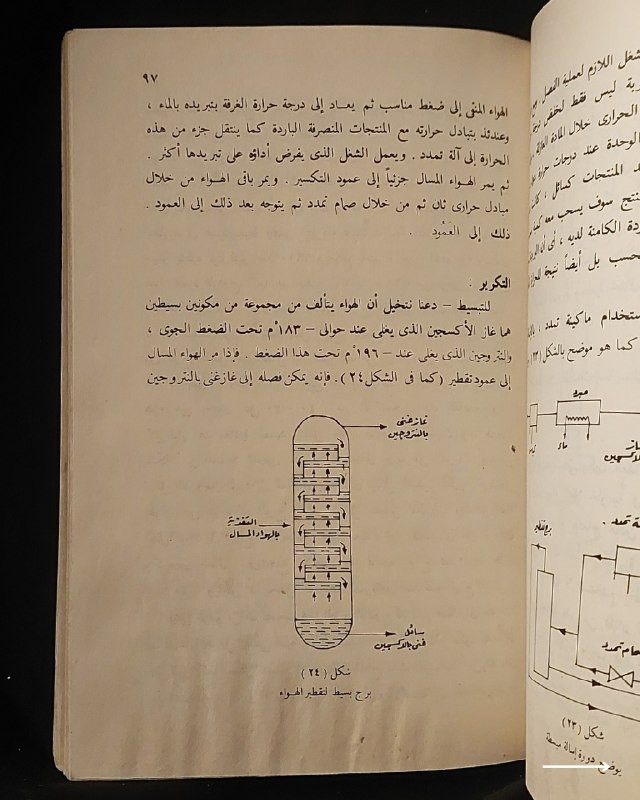 ٩٧
الهواء المنقى إلى ضغط مناسب ثم يعاد إلى درجة حرارة الغرفة بتبريده بالماء ،
وعندئذ يتبادل حرارته مع المنتجات المنصرفة الباردة كما ينتقل جزء من هذه
الحرارة إلى آلة تمدد . ويعمل الشغل الذى يفرض أداؤه على تبريدها أكثر .
ثم يمر الهواء المسال جزئياً إلى عمود التكسير . ويمر باقى الهواء من خلال
مبادل حرارى ثان ثم من خلال صمام تمدد ثم يتوجه بعد ذلك إلى العمود .
ذلك إلى العَمُود .
التكرير .
للتبسيط – دعنا نتخيل أن الهواء يتألف من مجموعة من مكونين بسيطين
هما غاز الأكسجين الذى يغلى عند حوالى – ١٨٣°م تحت الضغط الجوى ،
والنتروجين الذى يغلى عند – ١٩٦°م تحت هذا الضغط . فإذا مر الهواء المسال
إلى عمود تقطير (كما فى الشكل ٢٤) . فإنه يمكن فصله إلى غاز غنى بالنتروجين
غاز غنى
بالنتروجين
التغذية
بالهواء المسال
سائل
غنى بالأكسجين
شكل ( ٢٤ )
برج بسيط لتقطير الهواء
شغل اللازم لعملية الفصل
ليس فقط لخفض
الحرارى خلال المادة
الوحدة عند درجات حرارة
المنتجات كسائل ،
سوف يسحب معه
الكامنة لديه ، أى أن
بل أيضاً نتيجة
ستخدام ماكينة تمدد ،
كما هو موضح بالشكل (٢٣)
مبرد
ماء
برج تقطير
شكل (٢٣)
يوضح دورة إسالة بسيطة